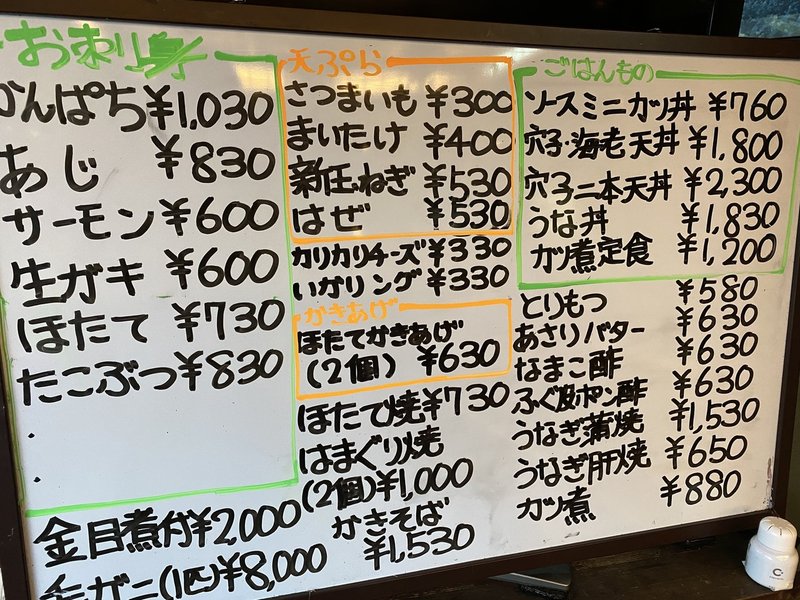 お刺身
かんぱち ¥1,030
あじ ¥830
サーモン ¥600
生ガキ ¥600
ほたて ¥730
たこぶつ ¥830
金目煮付 ¥2,000
毛ガニ(1匹) ¥8,000
天ぷら
さつまいも ¥300
まいたけ ¥400
新玉ねぎ ¥530
はぜ ¥530
カリカリチーズ ¥330
いかリング ¥330
かきあげ
ほたてかきあげ
(2個) ¥630
ほたて焼 ¥730
はまぐり焼
(2個) ¥1,000
かきそば
¥1,530
ごはんもの
ソースミニカツ丼 ¥760
穴子・海老天丼 ¥1,800
穴子二本天丼 ¥2,300
うな丼 ¥1,830
カツ煮定食 ¥1,200
とりもつ ¥580
あさりバター ¥630
なまこ酢 ¥630
ふぐ皮ポン酢 ¥630
うなぎ蒲焼 ¥1,530
うなぎ肝焼 ¥650
カツ煮 ¥880